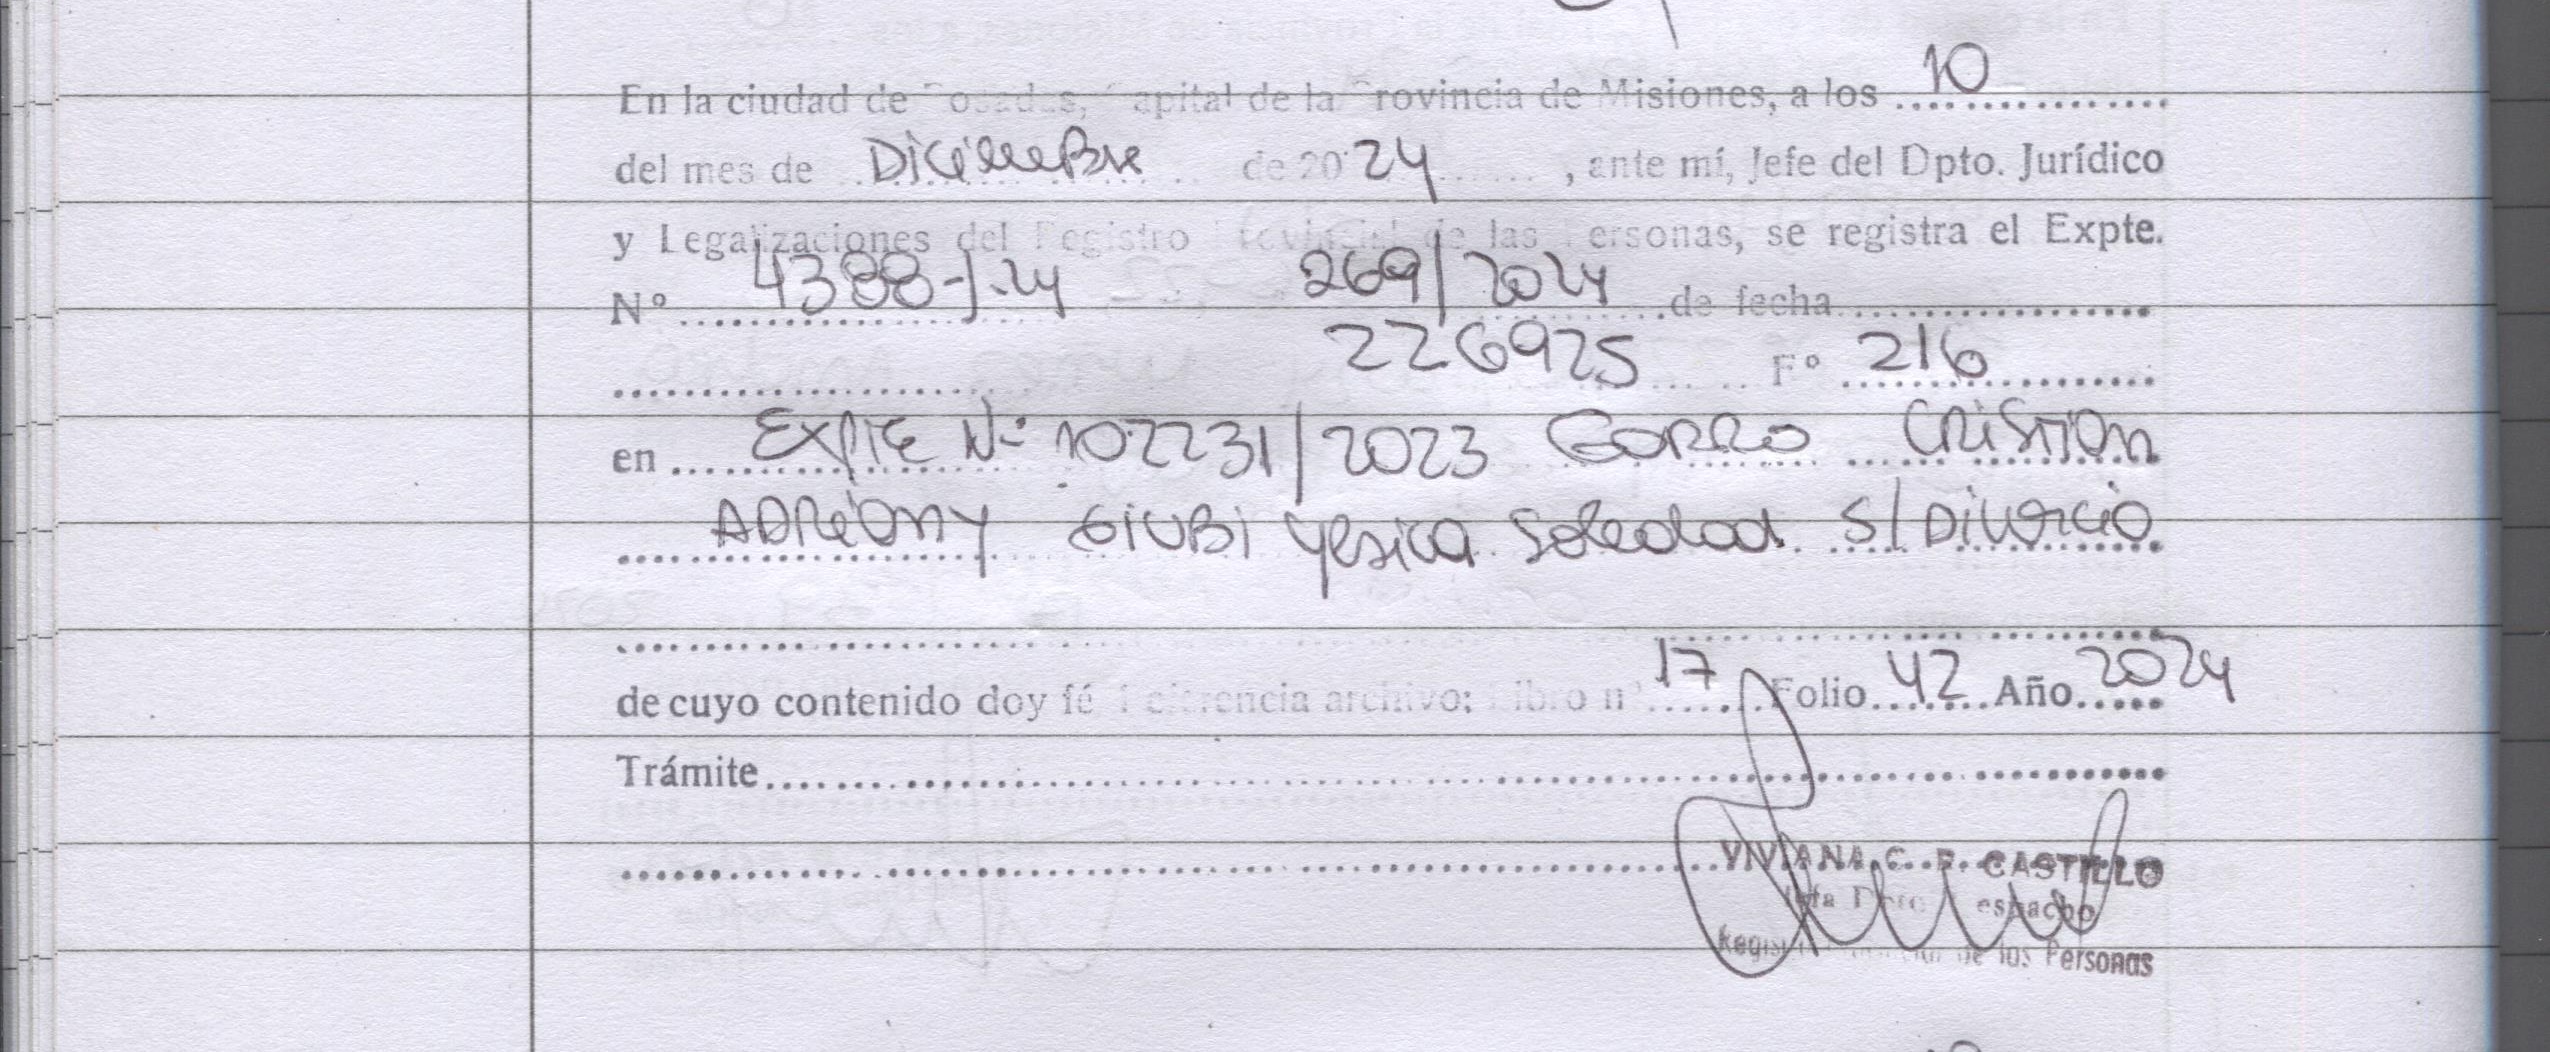 En la ciudad de Posadas, Capital de la Provincia de Misiones, a los 10
del mes de Diciembre de 2024, ante mí, Jefe del Dpto. Jurídico
y Legalizaciones del Registro Provincial de las Personas, se registra el Expte.
Nº 4388-J-24 269/2024 de fecha
226925 Fº 216
en Expte Nº 102231/2023 Gorro Cristian
Adrián y Giubi Yesica Soledad S/Divorcio
de cuyo contenido doy fé Referencia archivo; Libro nº 17 Folio 42 Año 2024
Trámite
VIVIANA C. CASTILLO
Jefa Dpto Despacho
Registro Provincial de las Personas